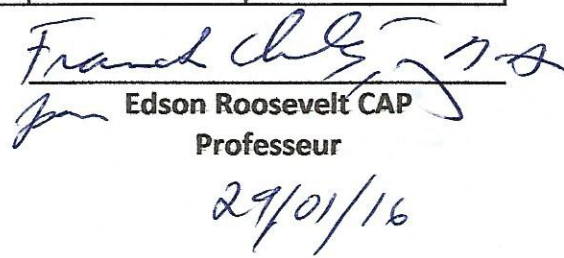 Franck
Edson Roosevelt CAP
Professeur
29/01/16